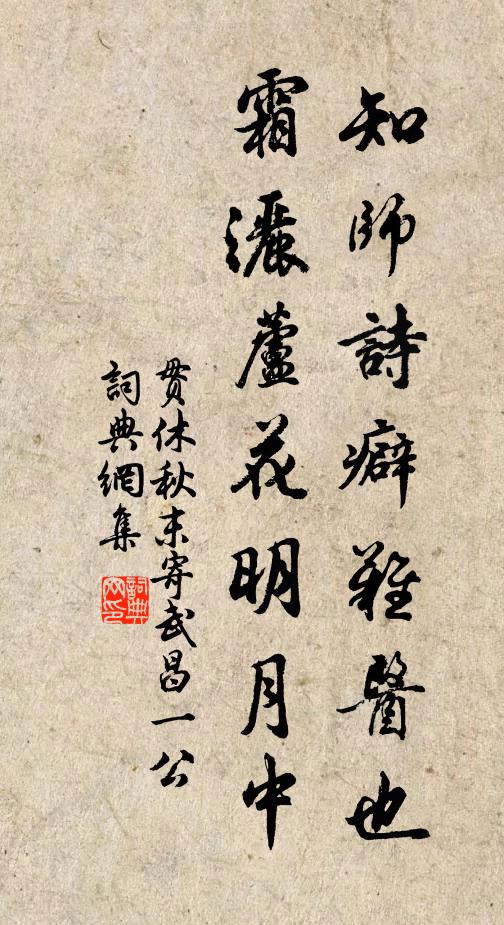 知師詩癖難醫也
霜灑蘆花明月中
貫休秋末寄武昌一公
詞典網集
詞典
网印